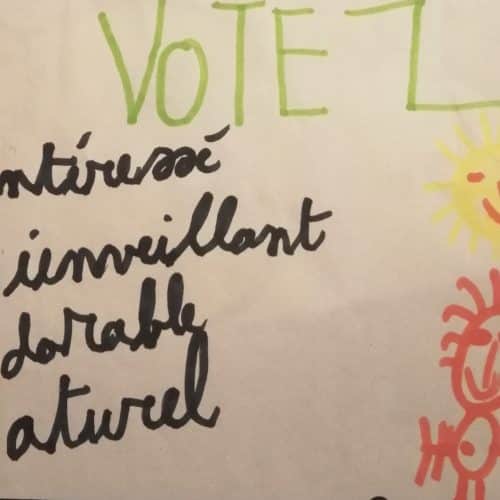 VOTEZ
ntéressé
ienveillant
dorable
aturel